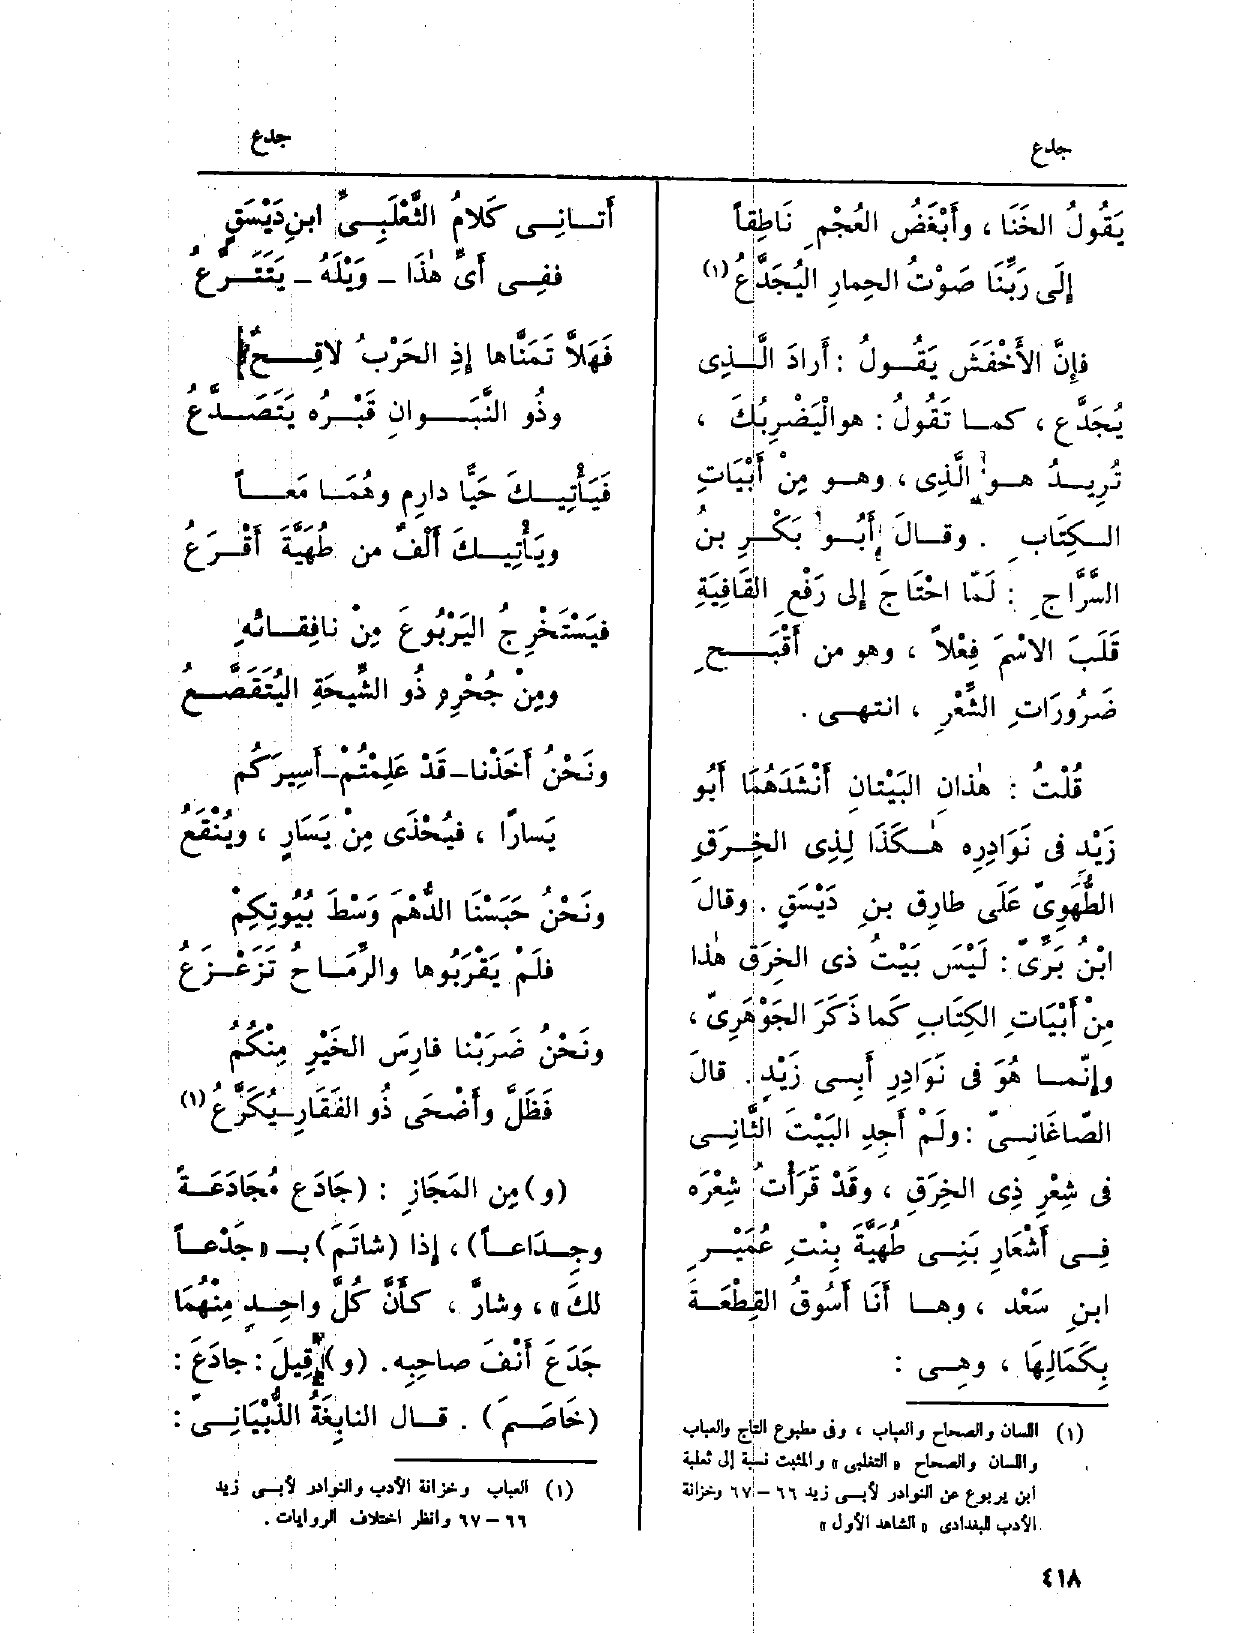 جدع
جدع
يَقُولُ الخَنَا ، وأَبْغَضُ العُجْمِ نَاطِقاً
إِلَى رَبِّنَا صَوْتُ الحِمارِ اليُجَدَّعُ (١)
فإِنَّ الأَخْفَش يَقُولُ : أَرادَ الَّذِى
يُجَدَّع ، كما تَقُولُ : هو الْيَضْرِبُكَ ،
تُرِيدُ هو الَّذِى ، وهو مِنْ أَبْيَاتِ
الكِتَابِ . وقالَ أَبُو بَكْرِ بنُ
السَّرَّاجِ : لَمّا احْتَاجَ إِلى رَفْعِ القَافِيَةِ
قَلَبَ الاسْمَ فِعْلاً ، وهو من أَقْبَحِ
ضَرُورَاتِ الشَّعْرِ ، انتهى .
قُلْتُ : هٰذان البَيْتانِ أَنْشَدَهُمَا أَبُو
زَيْدٍ فى نَوَادِرِه هٰكَذَا لِذِى الخِرَقِ
الطُّهَوِىّ عَلَى طارِق بنِ دَيْسَقٍ . وقالَ
ابْنُ بَرِّىّ : لَيْسَ بَيْتُ ذى الخِرَقِ هٰذا
مِنْ أَبْيَاتِ الكِتَابِ كَما ذَكَرَ الجَوْهَرِىّ ،
وإِنَّما هُوَ فى نَوَادِرِ أَبِى زَيْدٍ . قالَ
الصّاغَانِىّ : ولَمْ أَجِدِ البَيْتَ الثَّانِى
فى شِعْرِ ذِى الخِرَقِ ، وقَدْ قَرَأْتُ شِعْرَه
فِى أَشْعَارِ بَنِى طُهَيَّةَ بِنْتِ عُمَيْرِ
ابنِ سَعْد ، وها أَنَا أَسُوقُ القِطْعَةَ
بِكَمَالِهَا ، وهى :
(١) اللسان والصحاح والعباب ، وفى مطبوع التاج والعباب
واللسان والصحاح « التغلبى » والمثبت نسبة إلى ثعلبة
ابن يربوع عن النوادر لأبى زيد ٦٦ – ٦٧ وخزانة
الأدب للبغدادى « الشاهد الأول »
أَتانِى كَلامُ الثَّعْلَبِىِّ ابنِ دَيْسَقٍ
ففِى أَىِّ هٰذَا – وَيْلَهُ – يَتَتَرَّعُ
فَهَلاَّ تَمَنَّاها إِذِ الحَرْبُ لاقِحٌ
وذُو النَّبَوانِ قَبْرُه يَتَصَدَّعُ
فيَأْتِيكَ حَيَّا دارِمٍ وهُمَا مَعاً
ويَأْتِيكَ أَلْفٌ من طُهَيَّةَ أَقْرَعُ
فيَسْتَخْرِجُ اليَرْبُوعَ مِنْ نافِقائهِ
ومِنْ جُحْرِهِ ذُو الشِّيحَةِ اليُتَقَصَّعُ
ونَحْنُ أَخَذْنا–قَدْ عَلِمْتُمْ–أَسِيرَكُم
يَسارًا ، فيُحْذَى مِنْ يَسَارٍ ، ويُنْقَعُ
ونَحْنُ حَبَسْنَا الدُّهْمَ وَسْطَ بُيُوتِكِمْ
فلَمْ يَقْرَبُوها والرِّمَاحُ تَزَعْزَعُ
ونَحْنُ ضَرَبْنا فارِسَ الخَيْرِ مِنْكُمُ
فَظَلَّ وأَضْحَى ذُو الفَقَارِ يُكَرَّعُ (١)
(و) مِن المَجَازِ : (جَادَعَ مُجَادَعَةً
وجِدَاعاً) ، إِذا (شاتَمَ) بـ « جَدْعاً
لكَ » ، وشارَّ ، كأَنَّ كُلَّ واحِدٍ مِنْهُمَا
جَدَعَ أَنْفَ صاحِبِه . (و) قِيلَ : جادَعَ :
(خَاصَمَ) . قال النابِغَةُ الذُّبْيَانِىّ :
(١) العباب وخزانة الأدب والنوادر لأبى زيد
٦٦ – ٦٧ وانظر اختلاف الروايات .
٤١٨